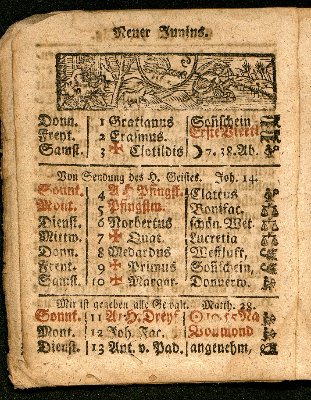 Neuer Junius.
Donn. 1 Gratianus Soñschein
Freyt. 2 Erasmus. Erste Viertl
Samst. 3 ✠ Clotildis ☽ 7. 38. Ab.
Von Sendung des H. Geistes. Joh. 14.
Sonnt. 4 A H Pfingst. Claccus
Mont. 5 Pfingstm. Bonifac.
Dienst. 6 Norbertus schön Wet.
Mittw. 7 ✠ Quat. Lucretia
Donn. 8 Medardus
Freyt. 9 ✠ Primus Soñschein,
Samst. 10 ✠ Margar. Donnerw.
Mir ist gegeben alle Gewalt. Matth. 28.
Sonnt. 11 A1 H. Dreyf. 10. 55 Na
Mont. 12 Joh. Fac. Voumond
Dienst. 13 Ant. v. Pad. angenehm,